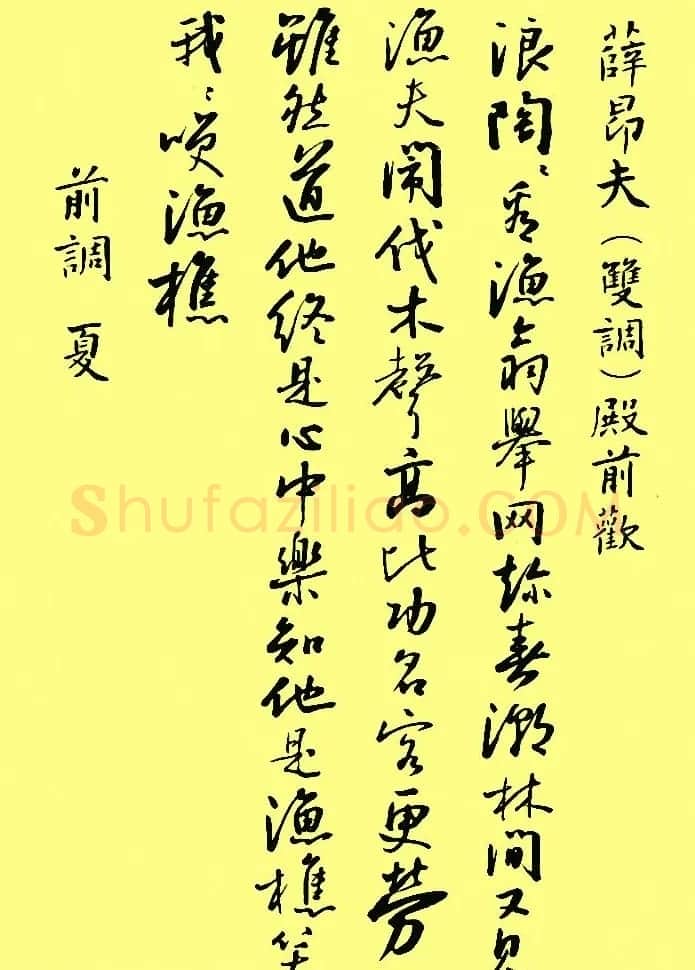 薛昂夫（雙調）殿前歡
浪陶〻看漁翁舉网趂春潮林间又見
漁夫鬧伐木聲高比功名客更勞
雖然道他終是心中樂知他是漁樵笑
我〻咲漁樵
前調 夏
Shufaziliao.COM